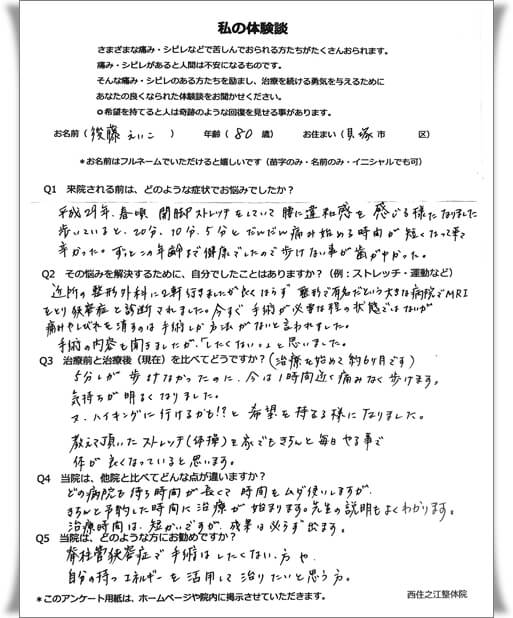 私の体験談
さまざまな痛み・シビレなどで苦しんでおられる方たちがたくさんおられます。
痛み・シビレがあると人間は不安になるものです。
そんな痛み・シビレのある方たちを励まし、治療を続ける勇気を与えるために
あなたの良くなられた体験談をお聞かせください。
○希望を持てると人は奇跡のような回復を見せる事があります。
お名前（後藤 えいこ ） 年齢（ 80 歳） お住まい（ 貝塚 市 区）
*お名前はフルネームでいただけると嬉しいです（苗字のみ・名前のみ・イニシャルでも可）
Q1 来院される前は、どのような症状でお悩みでしたか？
平成29年、春頃 開脚ストレッチをしていて腰に違和感を感じる様になりました
歩いていると、20分、10分、5分とだんだん痛み始める時間が短くなって来て
辛かった。ずっとこの年齢まで健康でしたので歩けない事が歯がゆかった。
Q2 その悩みを解決するために、自分でしたことはありますか？（例：ストレッチ・運動など）
近所の整形外科に2軒行きましたが良くならず 整形で有名だという大きな病院でMRI
をとり狭窄症と診断されました。今すぐ手術が必要な程の状態ではないが
痛みやしびれを消すのは手術しか方法がないと言われました。
手術の内容を聞きましたが、「したくない。」と思いました。
Q3 治療前と治療後（現在）を比べてどうですか？（治療を始めて約6ヶ月です）
5分しか歩けなかったのに、今は1時間近く痛みなく歩けます。
気持ちが明るくなりました。
又、ハイキングに行けるかも!?と希望を持てる様になりました。
教えて頂いたストレッチ（体操）を家でもきちんと毎日やる事で
体が良くなっていると思います。
Q4 当院は、他院と比べてどんな点が違いますか？
どの病院も待ち時間が長くて時間をムダ使いしますが、
きちんと予約した時間に治療が始まります。先生の説明もよくわかります。
治療時間は、短かいですが、成果は必らず出ます。
Q5 当院は、どのような方にお勧めですか？
脊柱管狭窄症で手術はしたくない方や、
自分の持つエネルギーを活用して治りたいと思う方。
*このアンケート用紙は、ホームページや院内に掲示させていただきます。
西住之江整体院